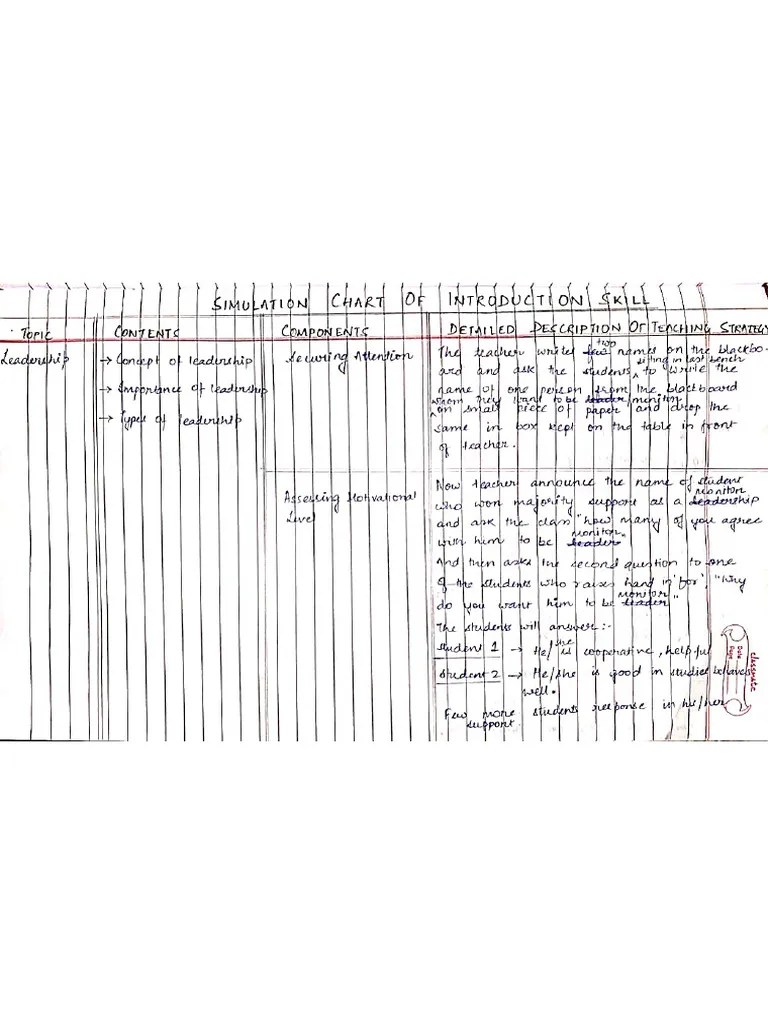 SIMULATION CHART OF INTRODUCTION SKILL
TOPIC CONTENTS COMPONENTS DETAILED DESCRIPTION OF TEACHING STRATEGY
Leadership
→ Concept of leadership
→ Importance of leadership
→ Types of leadership
Securing Attention
two
The teacher writes few names on the blackbo-
sitting in last bench
ard and ask the students to write the
name of one person from the blackboard
whom they want to be leader/monitor
on small piece of paper and drop the
same in box kept on the table in front
of teacher.
Assessing Motivational
Level
Now teacher announce the name of student
monitor
who won majority support as a leadership
and ask the class "how many of you agree
monitor
with him to be leader"
And then asks the second question to one
of the students who raises hand in 'for', "Why
monitor
do you want him to be leader"
The students will answer:-
she
student 1 → He/ is cooperative, helpful
student 2 → He/she is good in studies behaves
well.
Few more students response in his/her
support.
classmate
Date
Page